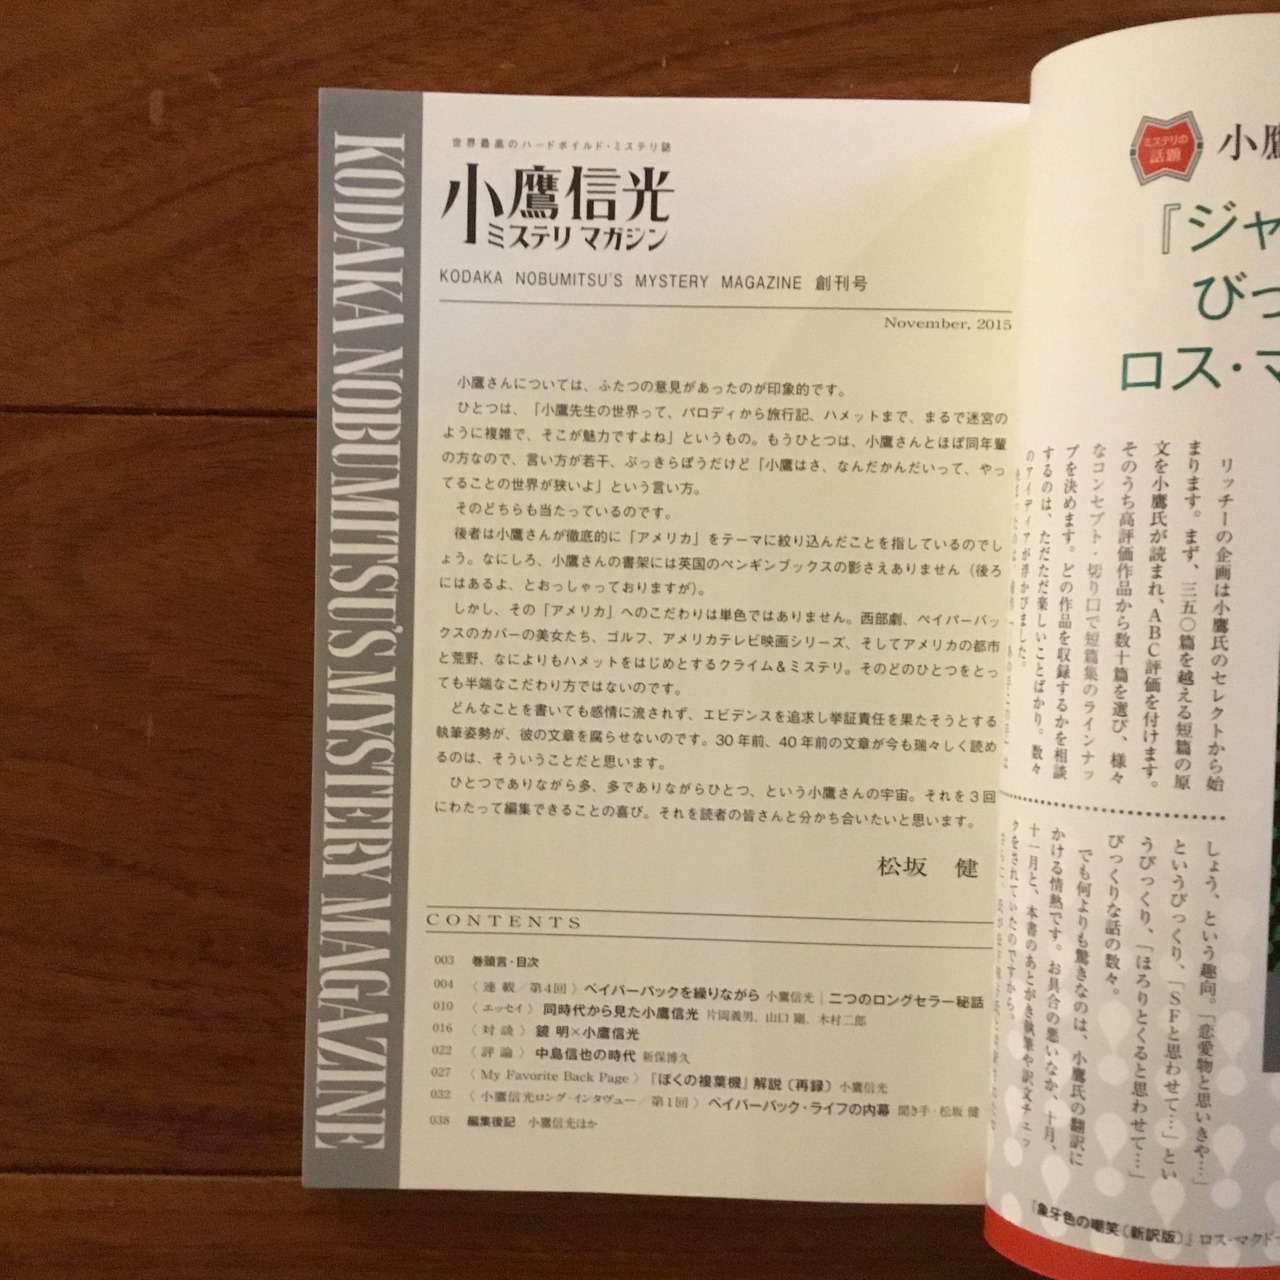 KODAKA NOBUMITSU'S MYSTERY MAGAZINE
世界最高のハードボイルド・ミステリ誌
小鷹信光
ミステリ マガジン
KODAKA NOBUMITSU'S MYSTERY MAGAZINE 創刊号
November, 2015
小鷹さんについては、ふたつの意見があったのが印象的です。
ひとつは、「小鷹先生の世界って、パロディから旅行記、ハメットまで、まるで迷宮の
ように複雑で、そこが魅力ですよね」というもの。もうひとつは、小鷹さんとほぼ同年輩
の方なので、言い方が若干、ぶっきらぼうだけど「小鷹はさ、なんだかんだいって、やっ
てることの世界が狭いよ」という言い方。
そのどちらも当たっているのです。
後者は小鷹さんが徹底的に「アメリカ」をテーマに絞り込んだことを指しているのでし
ょう。なにしろ、小鷹さんの書架には英国のペンギンブックスの影さえありません（後ろ
にはあるよ、とおっしゃっておりますが）。
しかし、その「アメリカ」へのこだわりは単色ではありません。西部劇、ペイパーバッ
クスのカバーの美女たち、ゴルフ、アメリカテレビ映画シリーズ、そしてアメリカの都市
と荒野、なによりもハメットをはじめとするクライム＆ミステリ。そのどのひとつをとっ
ても半端なこだわり方ではないのです。
どんなことを書いても感情に流されず、エビデンスを追求し挙証責任を果たそうとする
執筆姿勢が、彼の文章を腐らせないのです。30年前、40年前の文章が今も瑞々しく読め
るのは、そういうことだと思います。
ひとつでありながら多、多でありながらひとつ、という小鷹さんの宇宙。それを3回
にわたって編集できることの喜び。それを読者の皆さんと分かち合いたいと思います。
松坂 健
CONTENTS
003 巻頭言・目次
004 〈連載／第4回〉ペイパーバックを繰りながら 小鷹信光｜二つのロングセラー秘話
010 〈エッセイ〉同時代から見た小鷹信光 片岡義男、山口 剛、木村二郎
016 〈対談〉鏡 明×小鷹信光
022 〈評論〉中島信也の時代 新保博久
027 〈My Favorite Back Page〉『ぼくの複葉機』解説〔再録〕 小鷹信光
032 〈小鷹信光ロング・インタヴュー／第1回〉ペイパーバック・ライフの内幕 聞き手・松坂 健
038 編集後記 小鷹信光ほか
ミステリの
話題
小鷹
『ジャ
びっ
ロス・マ
リッチーの企画は小鷹氏のセレクトから始
まります。まず、三五〇篇を越える短篇の原
文を小鷹氏が読まれ、ABC評価を付けます。
そのうち高評価作品から数十篇を選び、様々
なコンセプト・切り口で短篇集のラインナッ
プを決めます。どの作品を収録するかを相談
するのは、ただただ楽しいことばかり。数々
のアイディアが浮かびました。
しょう、という趣向。「恋愛物と思いきや…」
というびっくり、「SFと思わせて…」とい
うびっくり、「ほろりとくると思わせて…」
びっくりな話の数々。
でも何よりも驚きなのは、小鷹氏の翻訳に
かける情熱です。お具合の悪いなか、十月、
十一月と、本書のあとがき執筆や訳文チェッ
クをされていたのですから。
『象牙色の嘲笑〔新訳版〕』ロス・マクドー